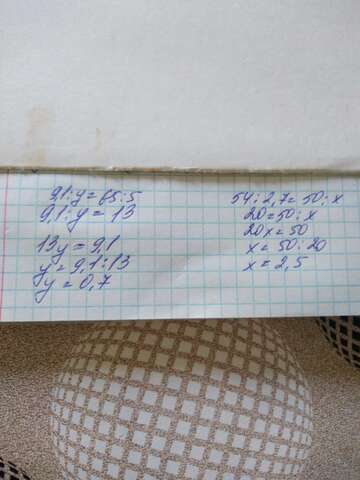 9,1:y=65:5
9,1:y=13
13y=9,1
y=9,1:13
y=0,7
54:2,7=50:x
20=50:x
20x=50
x=50:20
x=2,5